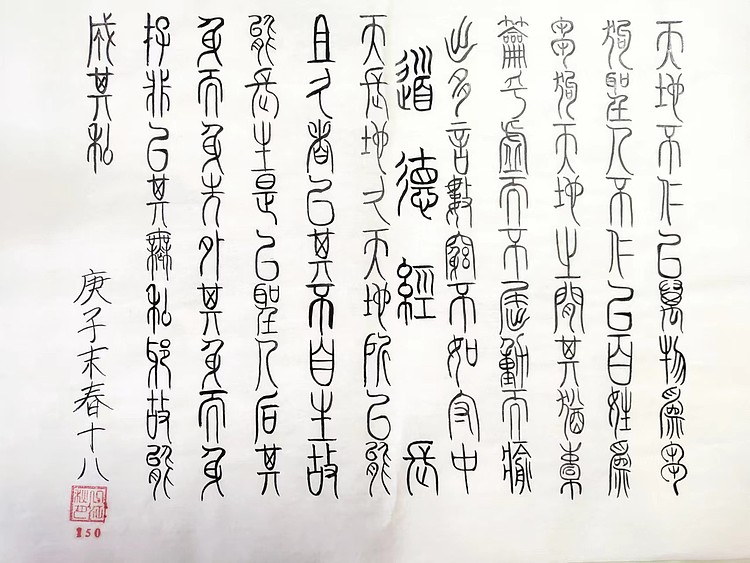 天地不仁以萬物為芻
狗聖人不仁以百姓為
芻狗天地之間其猶橐
籥乎虛而不屈動而愈
出多言數窮不如守中
道德經 長
天長地久天地所以能
且久者以其不自生故
能長生是以聖人后其
身而身先外其身而身
存非以其無私邪故能
成其私
庚子末春十八
150